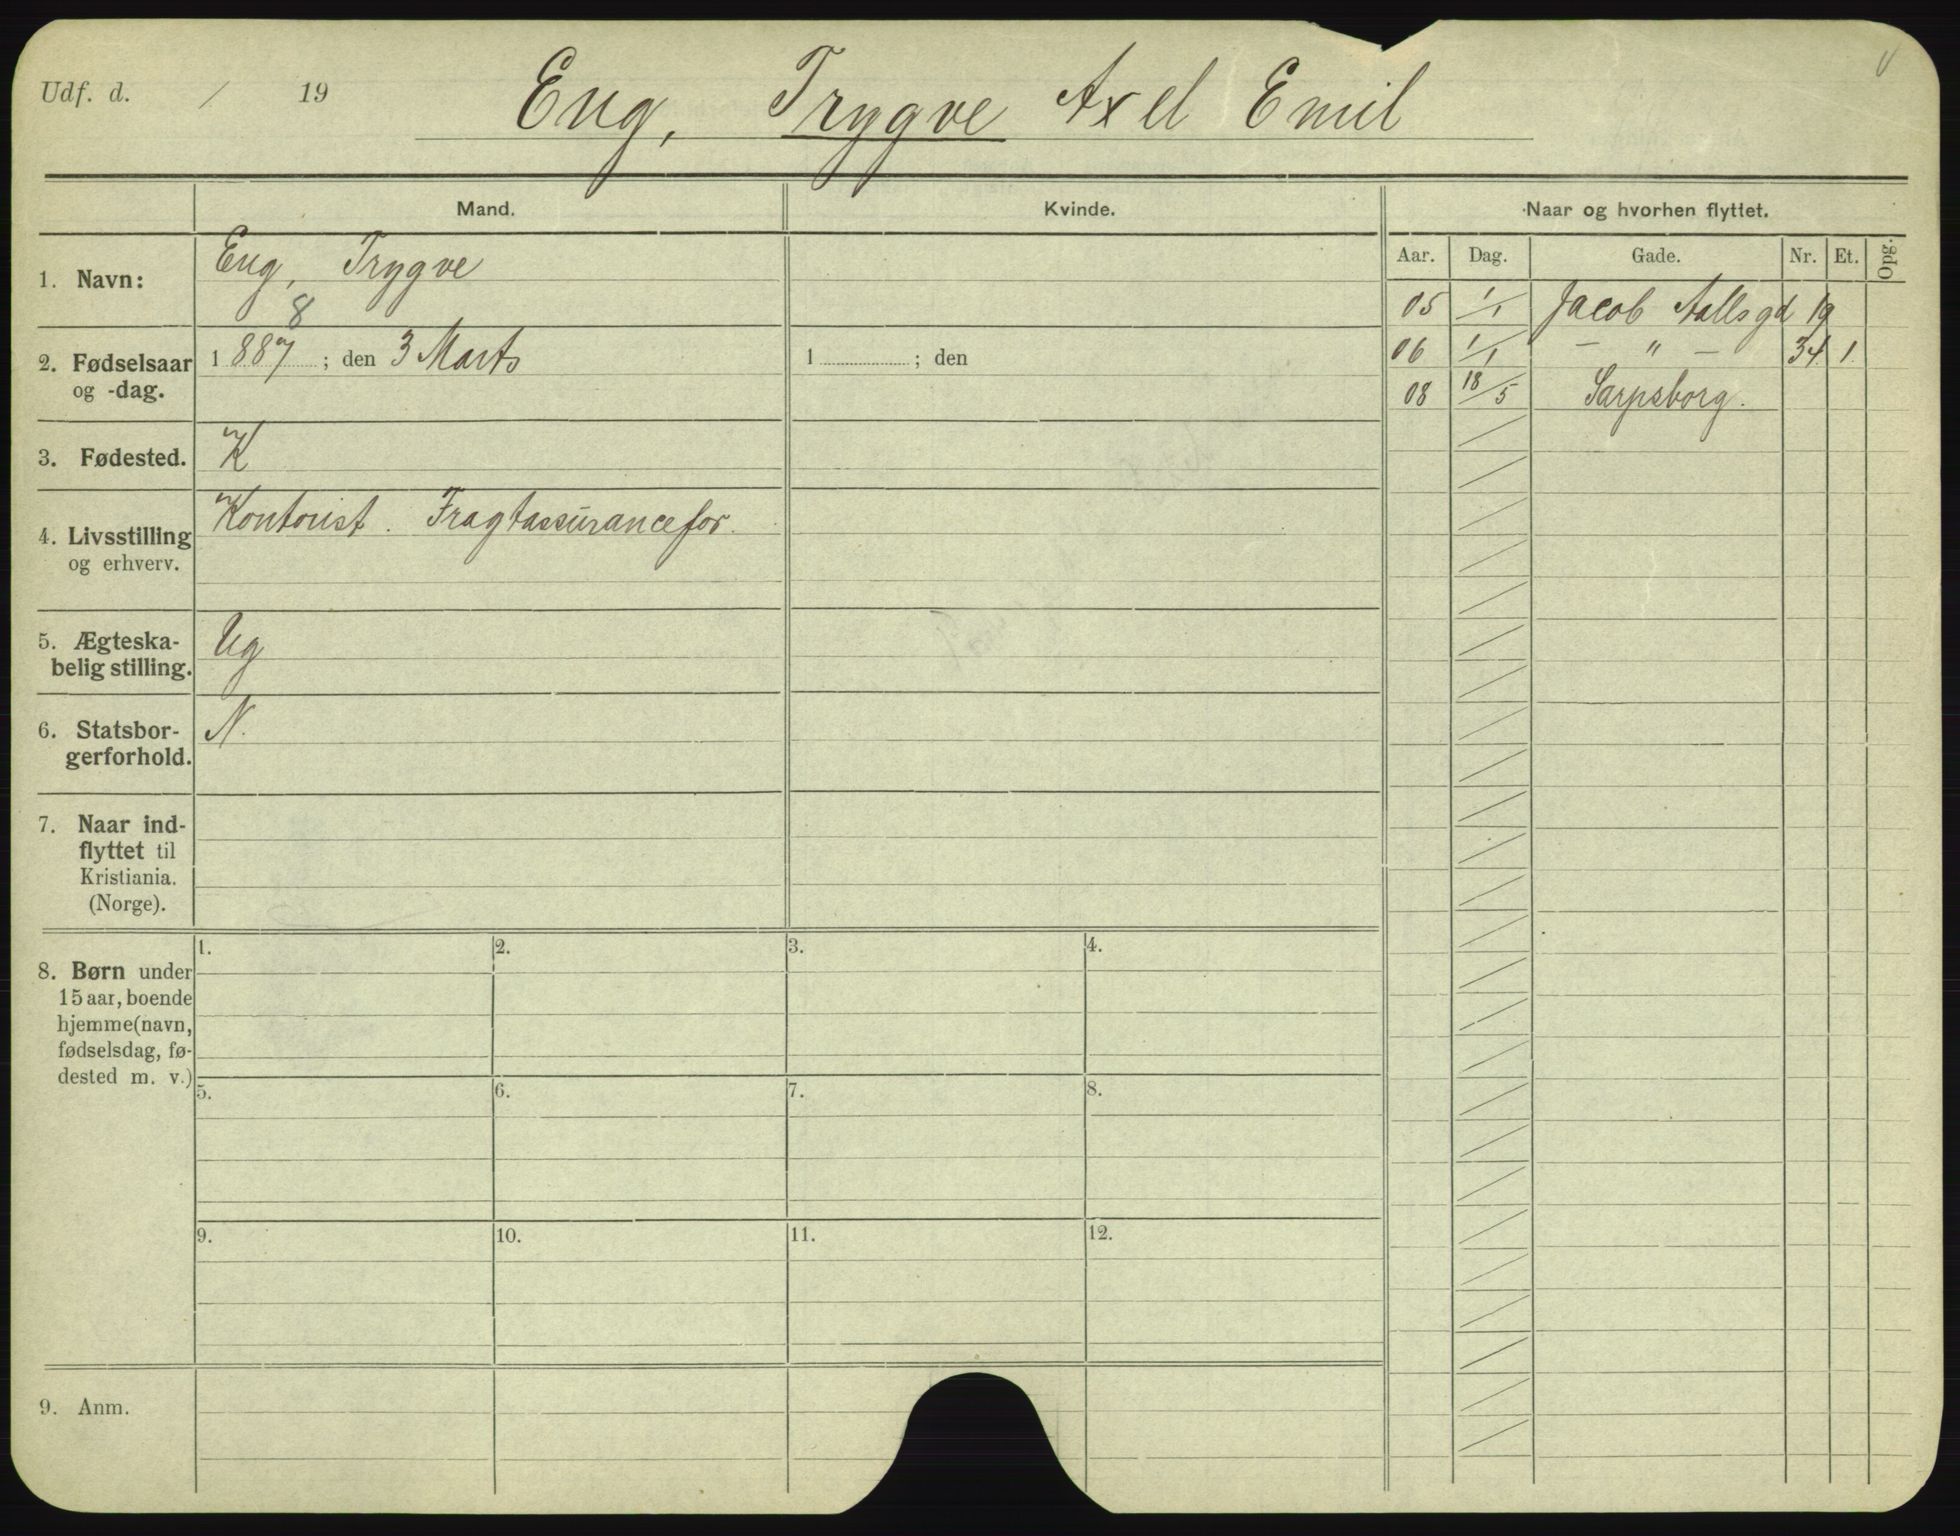 Udf. d. / 19
Eng, Trygve Axel Emil
Mand.
Kvinde.
Naar og hvorhen flyttet.
Aar. Dag. Gade. Nr. Et. Opg.
1. Navn:
Eng, Trygve
2. Fødselsaar
og -dag.
8
1887; den 3 Marts
1 ; den
3. Fødested.
K
4. Livsstilling
og erhverv.
Kontorist. Fragtassurancefor.
5. Ægteska-
belig stilling.
Ug
6. Statsbor-
gerforhold.
N.
7. Naar ind-
flyttet til
Kristiania.
(Norge).
8. Børn under
15 aar, boende
hjemme (navn,
fødselsdag, fø-
dested m. v.)
1. 2. 3. 4.
5. 6. 7. 8.
9. 10. 11. 12.
9. Anm.
05 1/1 Jacob Aallsgd 19
06 1/1 — „ — 34 1.
08 18/5 Sarpsborg.